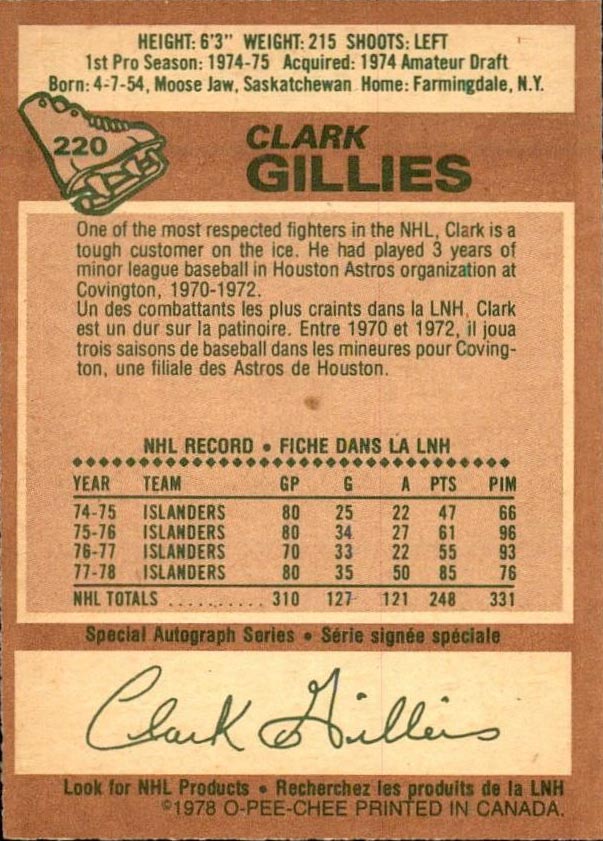 HEIGHT: 6'3" WEIGHT: 215 SHOOTS: LEFT
1st Pro Season: 1974-75 Acquired: 1974 Amateur Draft
Born: 4-7-54, Moose Jaw, Saskatchewan Home: Farmingdale, N.Y.
220
CLARK
GILLIES
One of the most respected fighters in the NHL, Clark is a
tough customer on the ice. He had played 3 years of
minor league baseball in Houston Astros organization at
Covington, 1970-1972.
Un des combattants les plus craints dans la LNH, Clark
est un dur sur la patinoire. Entre 1970 et 1972, il joua
trois saisons de baseball dans les mineures pour Coving-
ton, une filiale des Astros de Houston.
NHL RECORD • FICHE DANS LA LNH
YEAR TEAM GP G A PTS PIM
74-75 ISLANDERS 80 25 22 47 66
75-76 ISLANDERS 80 34 27 61 96
76-77 ISLANDERS 70 33 22 55 93
77-78 ISLANDERS 80 35 50 85 76
NHL TOTALS .......... 310 127 121 248 331
Special Autograph Series • Série signée spéciale
Clark Gillies
Look for NHL Products • Recherchez les produits de la LNH
©1978 O-PEE-CHEE PRINTED IN CANADA.